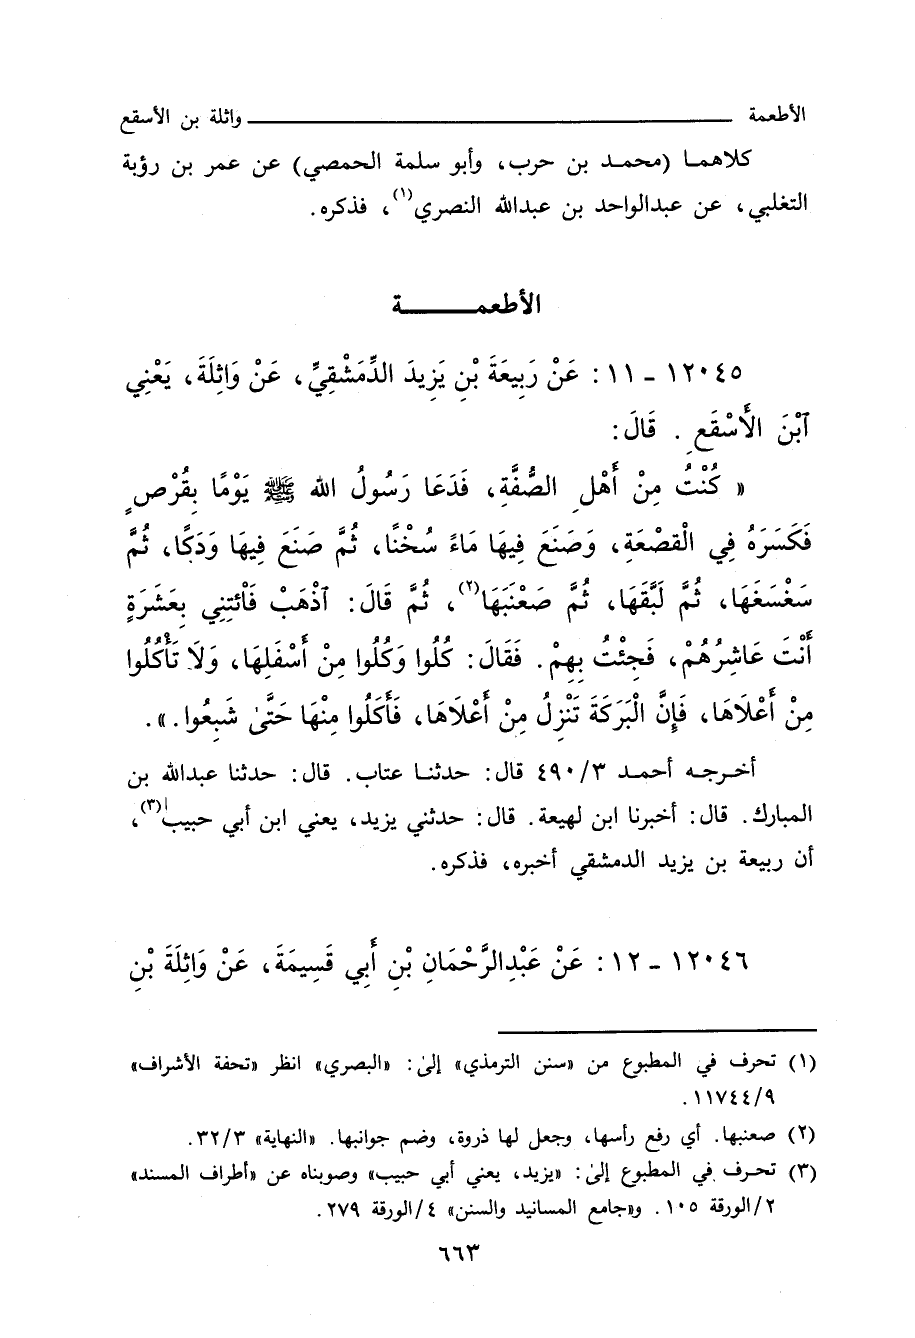 الأطعمة ــــــــــــــــــــــــــــــــــــــــ واثلة بن الأسقع
كلاهمـا (محمـد بن حرب، وأبو سلمة الحمصي) عن عمر بن رؤبة
التغلبي، عن عبدالواحد بن عبدالله النصري(١)، فذكره.
الأطعمــــــــة
١٢٠٤٥ - ١١: عَنْ رَبِيعَةَ بْنِ يَزِيدَ الدِّمَشْقِيِّ، عَنْ وَاثِلَةَ، يَعْنِي
آبْنَ الأَسْقَعِ. قَالَ:
« كُنْتُ مِنْ أَهْلِ الصُّفَّةِ، فَدَعَا رَسُولُ الله ﷺ يَوْمًا بِقُرْصٍ
فَكَسَرَهُ فِي الْقَصْعَةِ، وَصَنَعَ فِيهَا مَاءً سُخْنًا، ثُمَّ صَنَعَ فِيهَا وَدَكًا، ثُمَّ
سَغْسَغَهَا، ثُمَّ لَبَّقَهَا، ثُمَّ صَعْنَبَهَا(٢)، ثُمَّ قَالَ: آذْهَبْ فَأْتِنِي بِعَشَرَةٍ
أَنْتَ عَاشِرُهُمْ، فَجِئْتُ بِهِمْ. فَقَالَ: كُلُوا وَكُلُوا مِنْ أَسْفَلِهَا، وَلَا تَأْكُلُوا
مِنْ أَعْلَاهَا، فَإِنَّ الْبَرَكَةَ تَنْزِلُ مِنْ أَعْلَاهَا، فَأَكَلُوا مِنْهَا حَتَّىٰ شَبِعُوا.».
أخـرجـه أحمـد ٤٩٠/٣ قال: حدثنـا عتاب. قال: حدثنا عبدالله بن
المبارك. قال: أخبرنا ابن لهيعة. قال: حدثني يزيد، يعني ابن أبي حبيب(٣)،
أن ربيعة بن يزيد الدمشقي أخبره، فذكره.
١٢٠٤٦ - ١٢: عَنْ عَبْدِالرَّحْمَانِ بْنِ أَبِي قَسِيمَةَ، عَنْ وَاثِلَةَ بْنِ
(١) تحرف في المطبوع من «سنن الترمذي» إلىٰ: «البصري» انظر «تحفة الأشراف»
١١٧٤٤/٩.
(٢) صعنبها. أي رفع رأسها، وجعل لها ذروة، وضم جوانبها. «النهاية» ٣٢/٣.
(٣) تحـرف في المطبوع إلىٰ: «يزيد، يعني أبي حبيب» وصوبناه عن «أطراف المسند»
٢/الورقة ١٠٥. و«جامع المسانيد والسنن» ٤/الورقة ٢٧٩.
٦٦٣